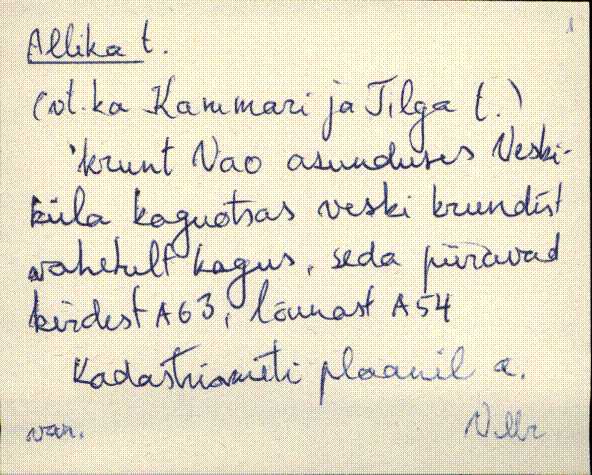 1
Allika t.
(vt. ka Kammari ja Tilga t.)
'krunt Vao asunduses Veski-
küla kaguotsas veski krundist
vahetult kagus, seda piiravad
kirdest A63, lõunast A54
Kadastriameti plaanil a.
van.